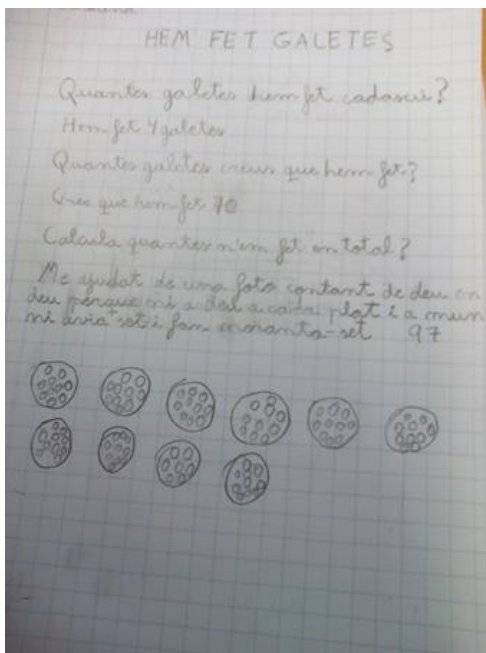 HEM FET GALETES
Quantes galetes hem fet cadascú?
Hem fet 4 galetes
Quantes galetes creus que hem fet?
Crec que hem fet 70
Calcula quantes n'em fet en total?
Me ajudat de una foto contant de deu en
deu perque ni a deu a cada plat i a meun
ni avia set i fan noranta-set 97